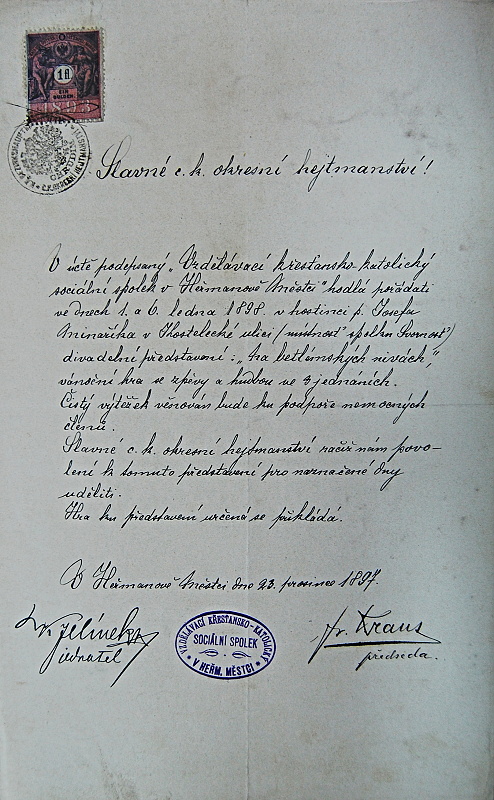 1 fl
EIN GULDEN
1893
Slavné c. k. okresní hejtmanství!
V úctě podepsaný „Vzdělávací křesťansko-katolický
sociální spolek v Heřmanově Městci" hodlá pořádati
ve dnech 1. a 6. ledna 1898 v hostinci p. Josefa
Minaříka v Kostelecké ulici (místnost spolku Svornost)
divadelní představení: „Na betlémských nivách",
vánoční hra se zpěvy a hudbou ve 3 jednáních.
Čistý výtěžek věnován bude ku podpoře nemocných
členů.
Slavné c. k. okresní hejtmanství račiž nám povo-
lení k tomuto představení pro naznačené dny
uděliti.
Hra ku představení určená se přikládá.
V Heřmanově Městci dne 23. prosince 1897.
Jelínek
jednatel
VZDĚLÁVACÍ KŘESŤANSKO-KATOLICKÝ
SOCIÁLNÍ SPOLEK
V HEŘM. MĚSTCI
Fr. Kraus
předseda.